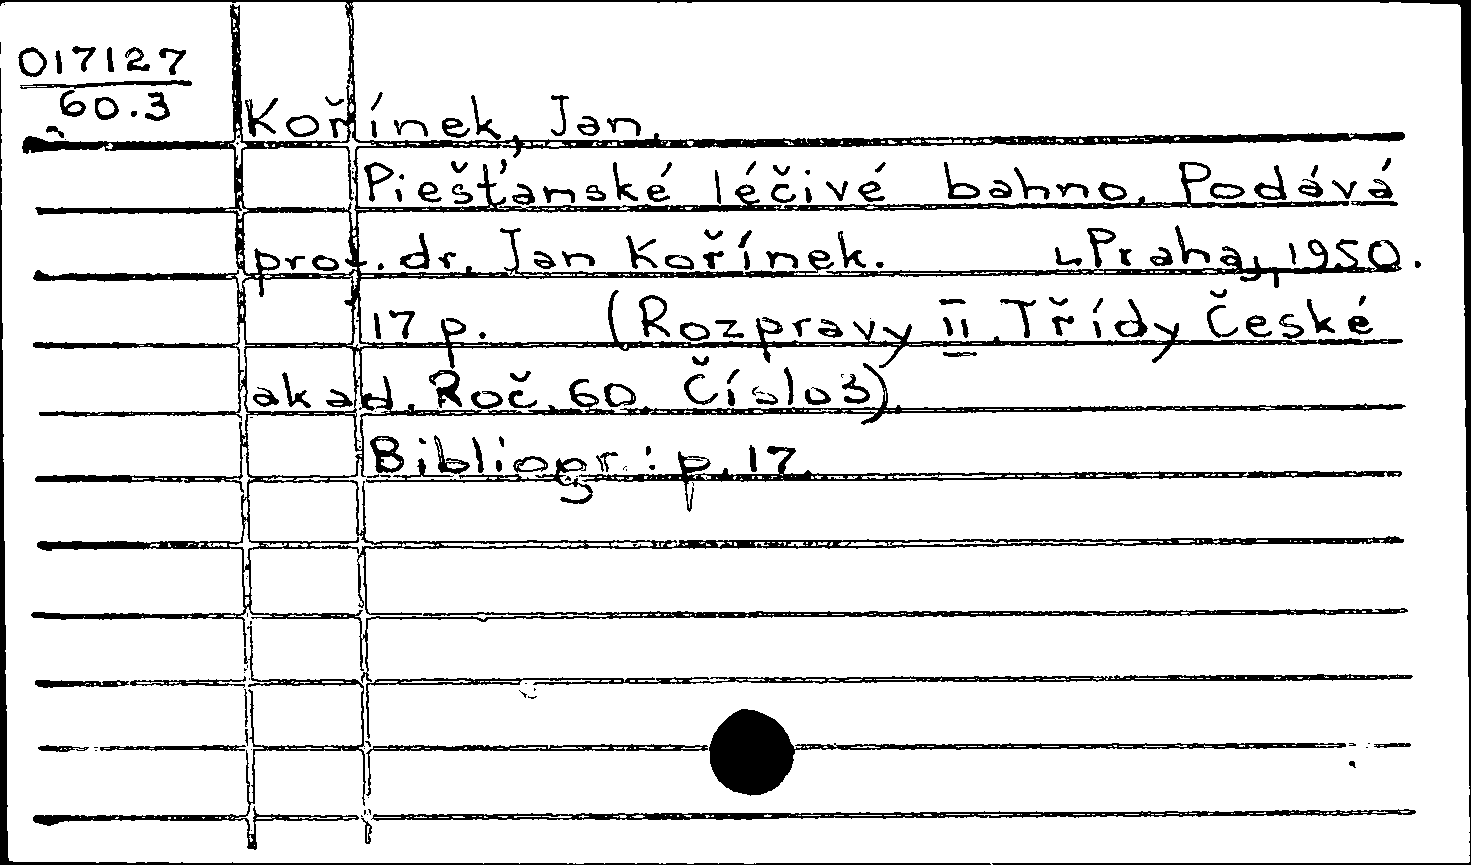 017127
60.3
Kořínek, Jan.
Piešťanské léčivé bahno. Podává
prof. dr. Jan Kořínek. Praha, 1950.
17 p. (Rozpravy II. Třídy České
akad. Roč. 60. Číslo 3).
Bibliogr.: p. 17.